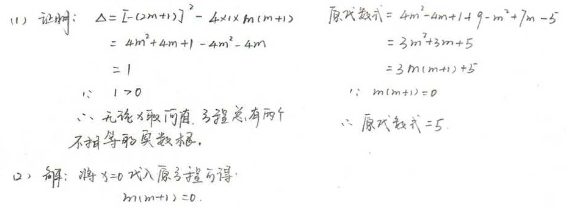 (1) 证明: Δ=[-(2m+1)]²-4×1×m(m+1)
=4m²+4m+1-4m²-4m
=1
∵ 1>0
∴ 无论x取何值,方程总有两个
不相等的实数根.
(2) 解: 将x=0代入原方程可得:
m(m+1)=0.
原代数式=4m²-4m+1+9-m²+7m-5
=3m²+3m+5
=3m(m+1)+5
∵ m(m+1)=0
∴ 原代数式=5.